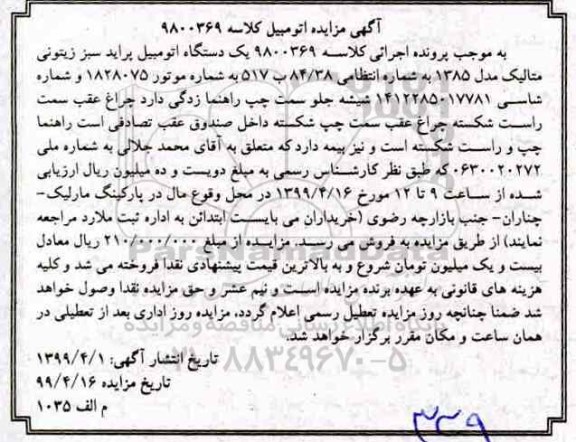 آگهی مزایده اتومبیل کلاسه ۹۸۰۰۳۶۹
به موجب پرونده اجرائی کلاسه ۹۸۰۰۳۶۹ یک دستگاه اتومبیل پراید سبز زیتونی
متالیک مدل ۱۳۸۵ به شماره انتظامی ۸۴/۳۸ ب ۵۱۷ به شماره موتور ۱۸۲۸۰۷۵ و شماره
شاسی ۱۴۱۲۲۸۵۰۱۷۷۸۱ شیشه جلو سمت چپ راهنما زدگی دارد چراغ عقب سمت
راست شکسته چراغ عقب سمت چپ شکسته داخل صندوق عقب تصادفی است راهنما
چپ و راست شکسته است و نیز بیمه دارد که متعلق به آقای محمد جلالی به شماره ملی
۰۶۳۰۰۲۰۲۷۲ که طبق نظر کارشناس رسمی به مبلغ دویست و ده میلیون ریال ارزیابی
شده از ساعت ۹ تا ۱۲ مورخ ۱۳۹۹/۴/۱۶ در محل وقوع مال در پارکینگ مارلیک-
چناران- جنب بازارچه رضوی (خریداران می بایست ابتدائن به اداره ثبت ملارد مراجعه
نمایند) از طریق مزایده به فروش می رسد. مزایده از مبلغ ۲۱۰/۰۰۰/۰۰۰ ریال معادل
بیست و یک میلیون تومان شروع و به بالاترین قیمت پیشنهادی نقدا فروخته می شد و کلیه
هزینه های قانونی به عهده برنده مزایده است و نیم عشر و حق مزایده نقدا وصول خواهد
شد ضمنا چنانچه روز مزایده تعطیل رسمی اعلام گردد، مزایده روز اداری بعد از تعطیلی در
همان ساعت و مکان مقرر برگزار خواهد شد.
تاریخ انتشار آگهی: ۱۳۹۹/۴/۱
تاریخ مزایده ۹۹/۴/۱۶
م الف ۱۰۳۵
۳۳۹
ParsNamadData
پایگاه اطلاع رسانی مناقصه و مزایده
۰۲۱-۸۸۳۴۹۶۷۰-۵